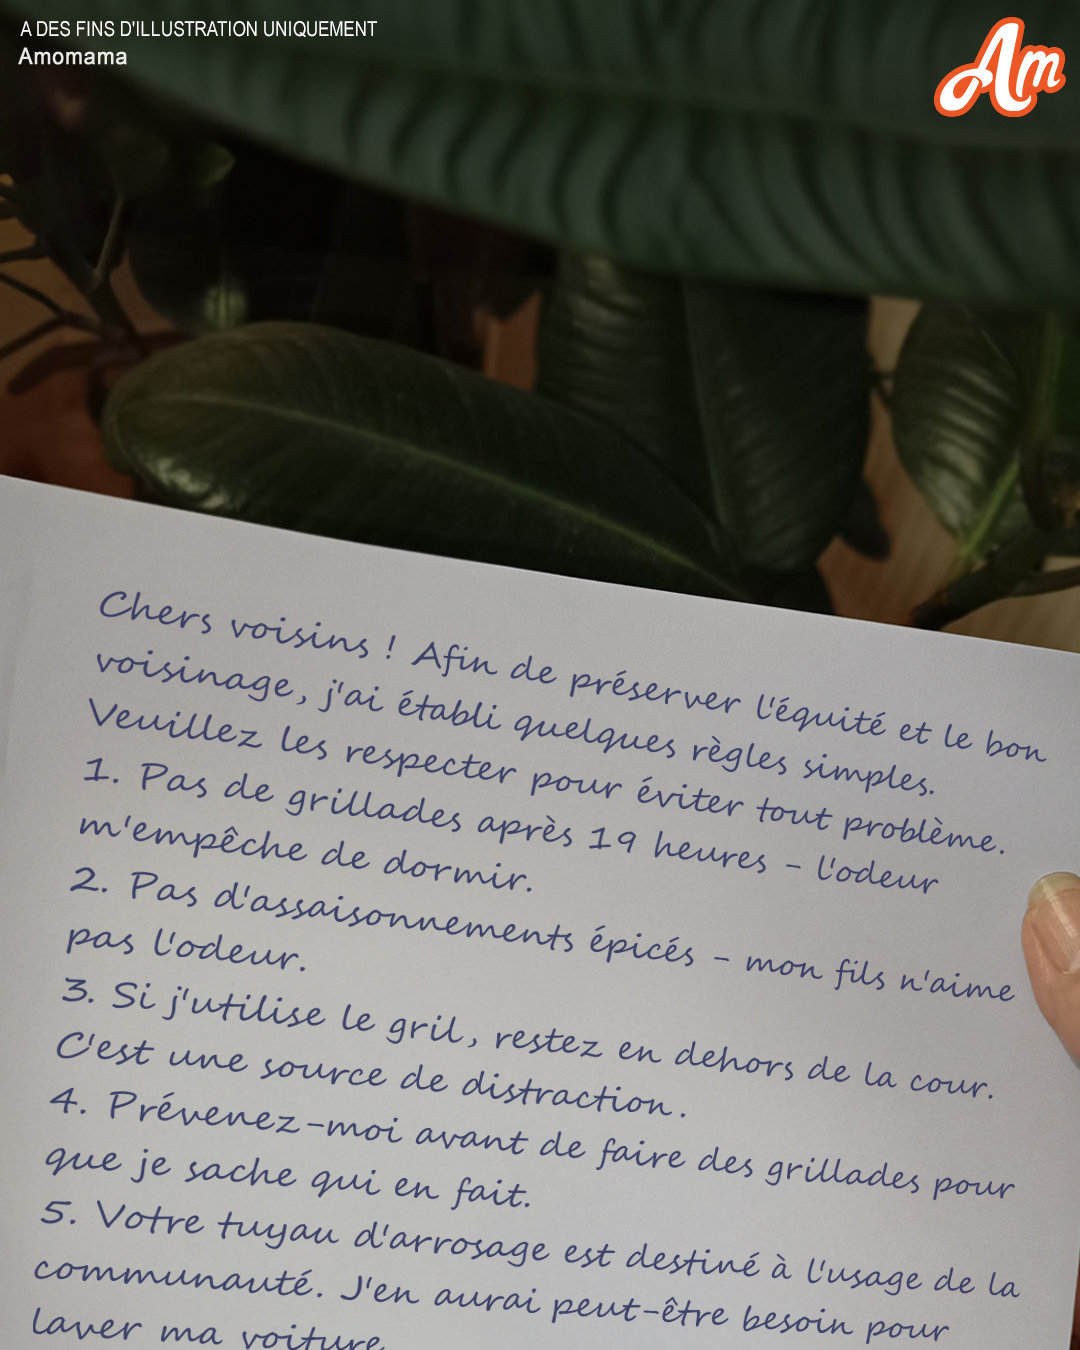 A DES FINS D'ILLUSTRATION UNIQUEMENT
Amomama
Am
Chers voisins ! Afin de préserver l'équité et le bon
voisinage, j'ai établi quelques règles simples.
Veuillez les respecter pour éviter tout problème.
1. Pas de grillades après 19 heures - l'odeur
m'empêche de dormir.
2. Pas d'assaisonnements épicés - mon fils n'aime
pas l'odeur.
3. Si j'utilise le gril, restez en dehors de la cour.
C'est une source de distraction.
4. Prévenez-moi avant de faire des grillades pour
que je sache qui en fait.
5. Votre tuyau d'arrosage est destiné à l'usage de la
communauté. J'en aurai peut-être besoin pour
laver ma voiture